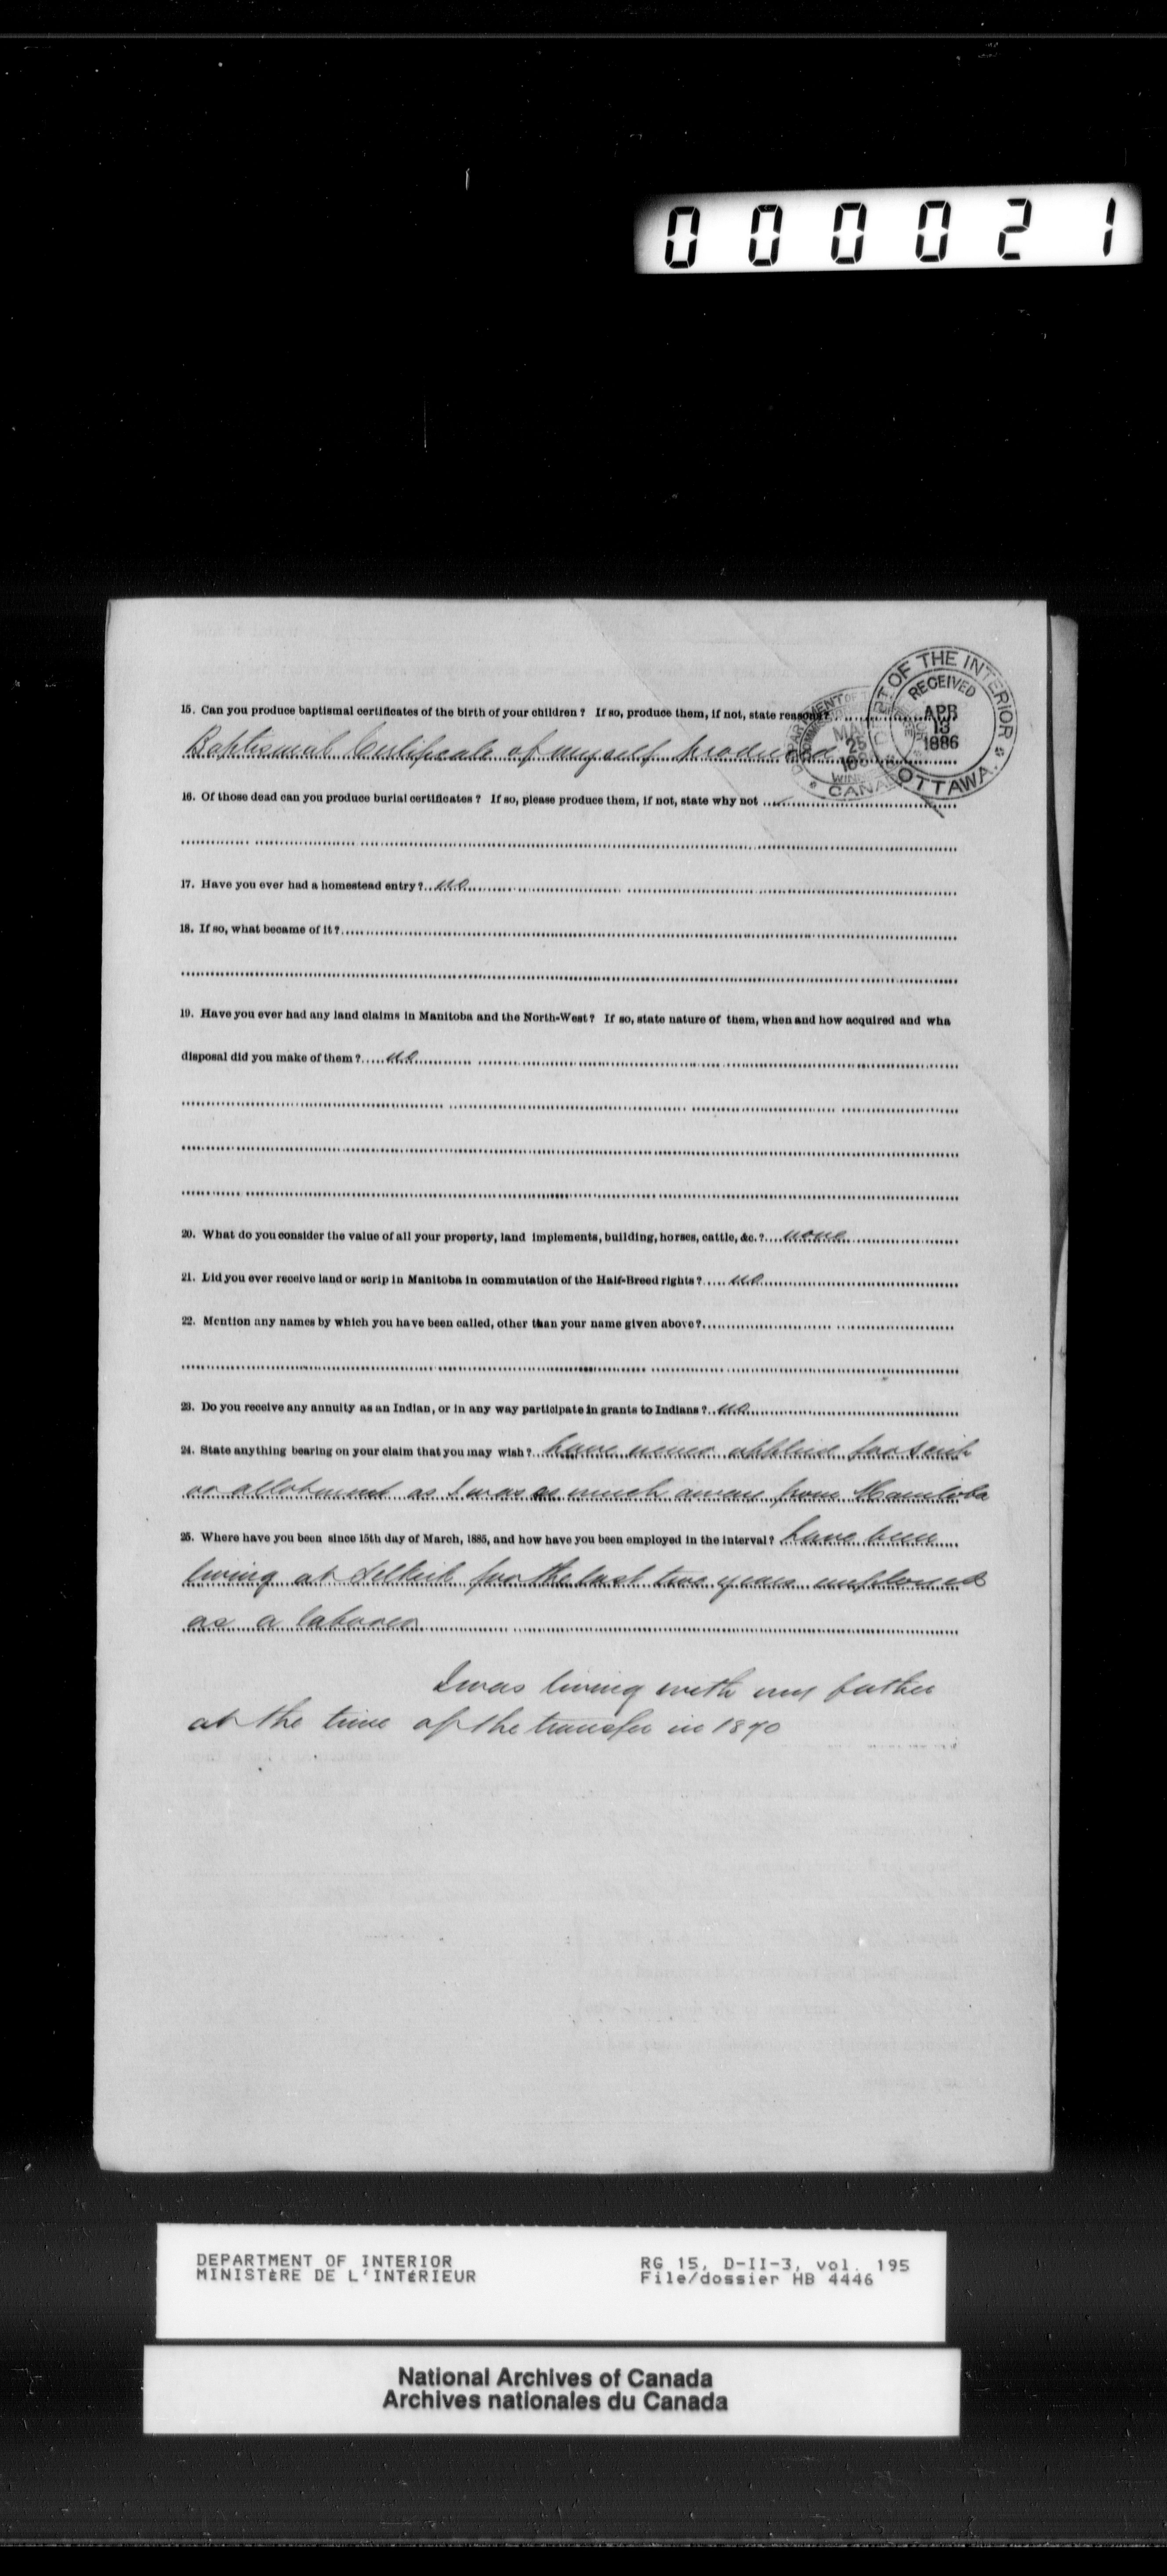 000021
DEPARTMENT OF THE INTERIOR
RECEIVED
APR
13
1886
OTTAWA.
25
CANADA
15. Can you produce baptismal certificates of the birth of your children? If so, produce them, if not, state reasons?
Baptismal Certificate of myself produced
16. Of those dead can you produce burial certificates? If so, please produce them, if not, state why not
17. Have you ever had a homestead entry? no
18. If so, what became of it?
19. Have you ever had any land claims in Manitoba and the North-West? If so, state nature of them, when and how acquired and wha
disposal did you make of them? no
20. What do you consider the value of all your property, land implements, building, horses, cattle, &c.? none
21. Did you ever receive land or scrip in Manitoba in commutation of the Half-Breed rights? no
22. Mention any names by which you have been called, other than your name given above?
23. Do you receive any annuity as an Indian, or in any way participate in grants to Indians? no
24. State anything bearing on your claim that you may wish? have never applied for scrip
or allotment as I was so much away from Manitoba
25. Where have you been since 15th day of March, 1885, and how have you been employed in the interval? have been
living at Selkirk for the last two years employed
as a laborer
I was living with my father
at the time of the transfer in 1870
DEPARTMENT OF INTERIOR
MINISTÈRE DE L'INTÉRIEUR
RG 15, D-II-3, vol. 195
File/dossier HB 4446
National Archives of Canada
Archives nationales du Canada